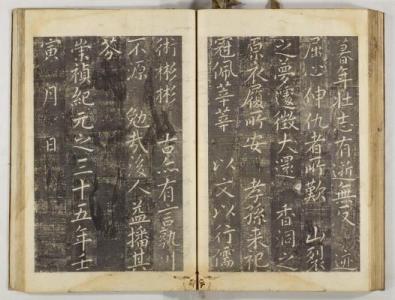 暮年壯志有逝無
屈心伸仇者所歎 山裂
之夢遽徵大還 香洞之
原衣履所安 孝孫來祀
冠佩莘莘 以文以行儒
術彬彬 古亦有言孰川
不源 勉哉後人益播其
芬
崇禎紀元之三十五年壬
寅 月 日